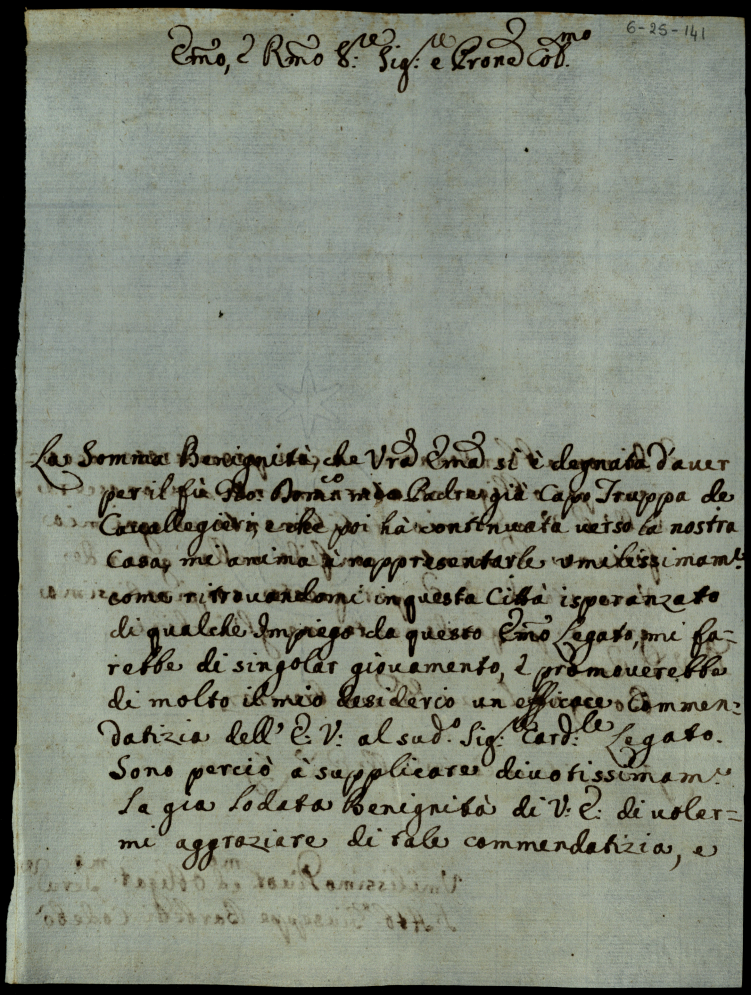 6-25-141
Emo, e Rmo S.re Sig.re e Prone Cob.mo
La Somma Benignità, che Vra Ema si è degnata d'aver
per il fù mio Padre già Capo Truppa de
Cavallegieri, e che poi ha continuata verso la nostra
Casa, mi anima à rappresentarle umilissimam.e
come ritrovandomi in questa Città isperanzato
di qualche Impiego da questo Emo Legato, mi fa-
rebbe di singolar giovamento, e promoverebbe
di molto il mio desiderio un efficace Commen-
datizia dell' E: V: al sud.o Sig.r Card.le Legato.
Sono perciò à supplicare divotissimam.e
la gia lodata Benignità di V: E: di voler=
mi aggraziare di tale commendatizia, e